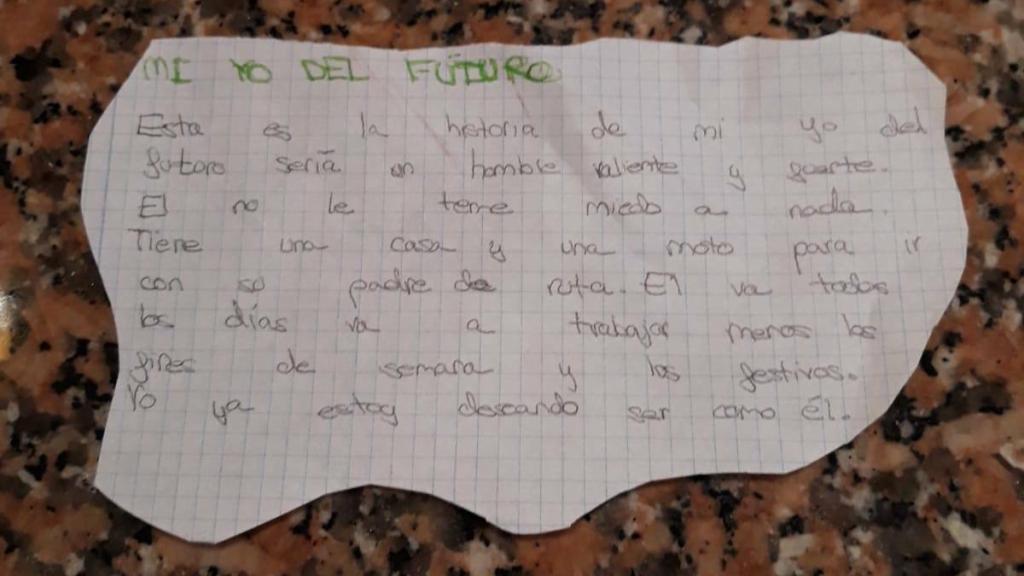 MI YO DEL FUTURO
Esta es la hetoria de mi yo del
futoro seria un homble valiente y fuerte.
El no le teme miedo a nada.
Tiene una casa y una moto para ir
con so padre de ruta. El va todos
los días va a trabajar menos los
fines de semana y los festivos.
Yo ya estoy deseando ser como él.